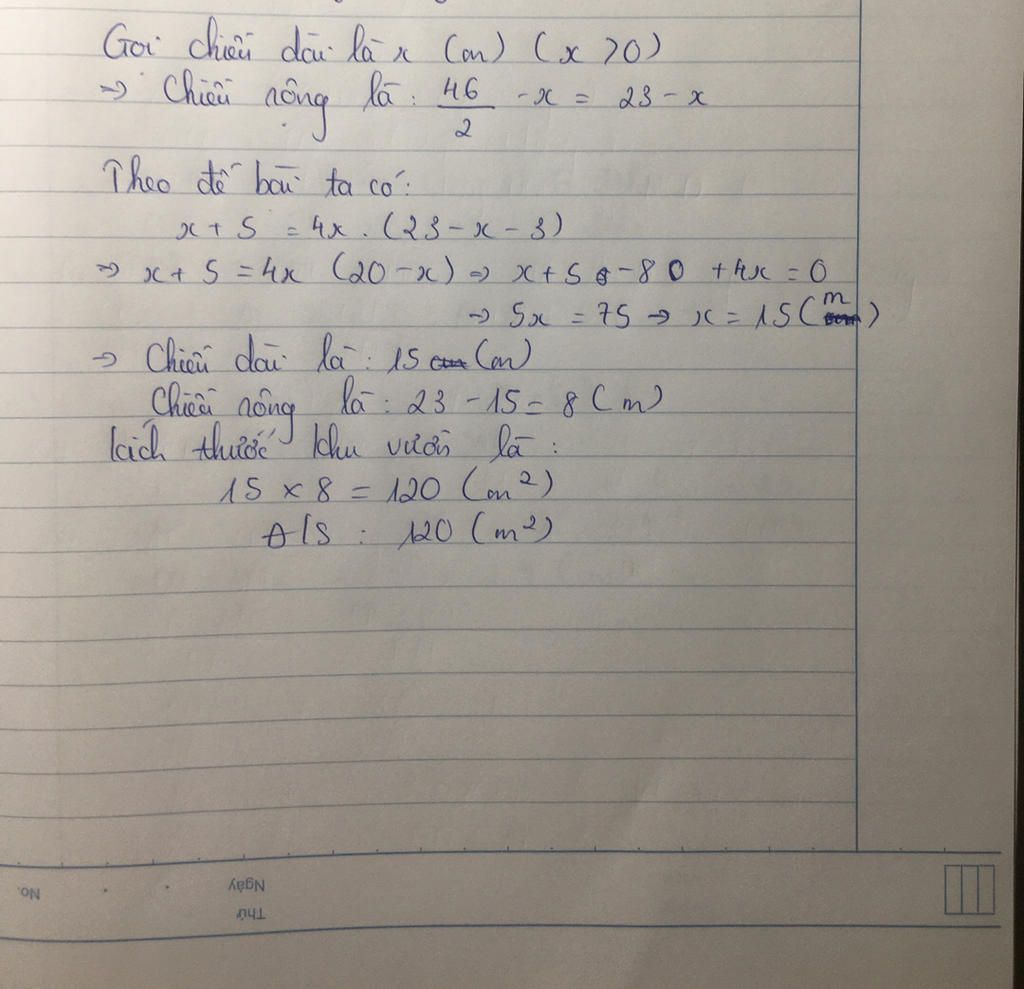 Gọi chiều dài là x (m) (x > 0)
=> Chiều rộng là : 46/2 - x = 23 - x
Theo đề bài ta có:
x + 5 = 4x . (23 - x - 3)
=> x + 5 = 4x (20 - x) => x + 5 - 80 + 4x = 0
=> 5x = 75 => x = 15 (m)
=> Chiều dài là : 15 (m)
Chiều rộng là : 23 - 15 = 8 (m)
kích thước khu vườn là :
15 x 8 = 120 (m²)
Đ/S : 120 (m²)
No.
Ngày
Thứ